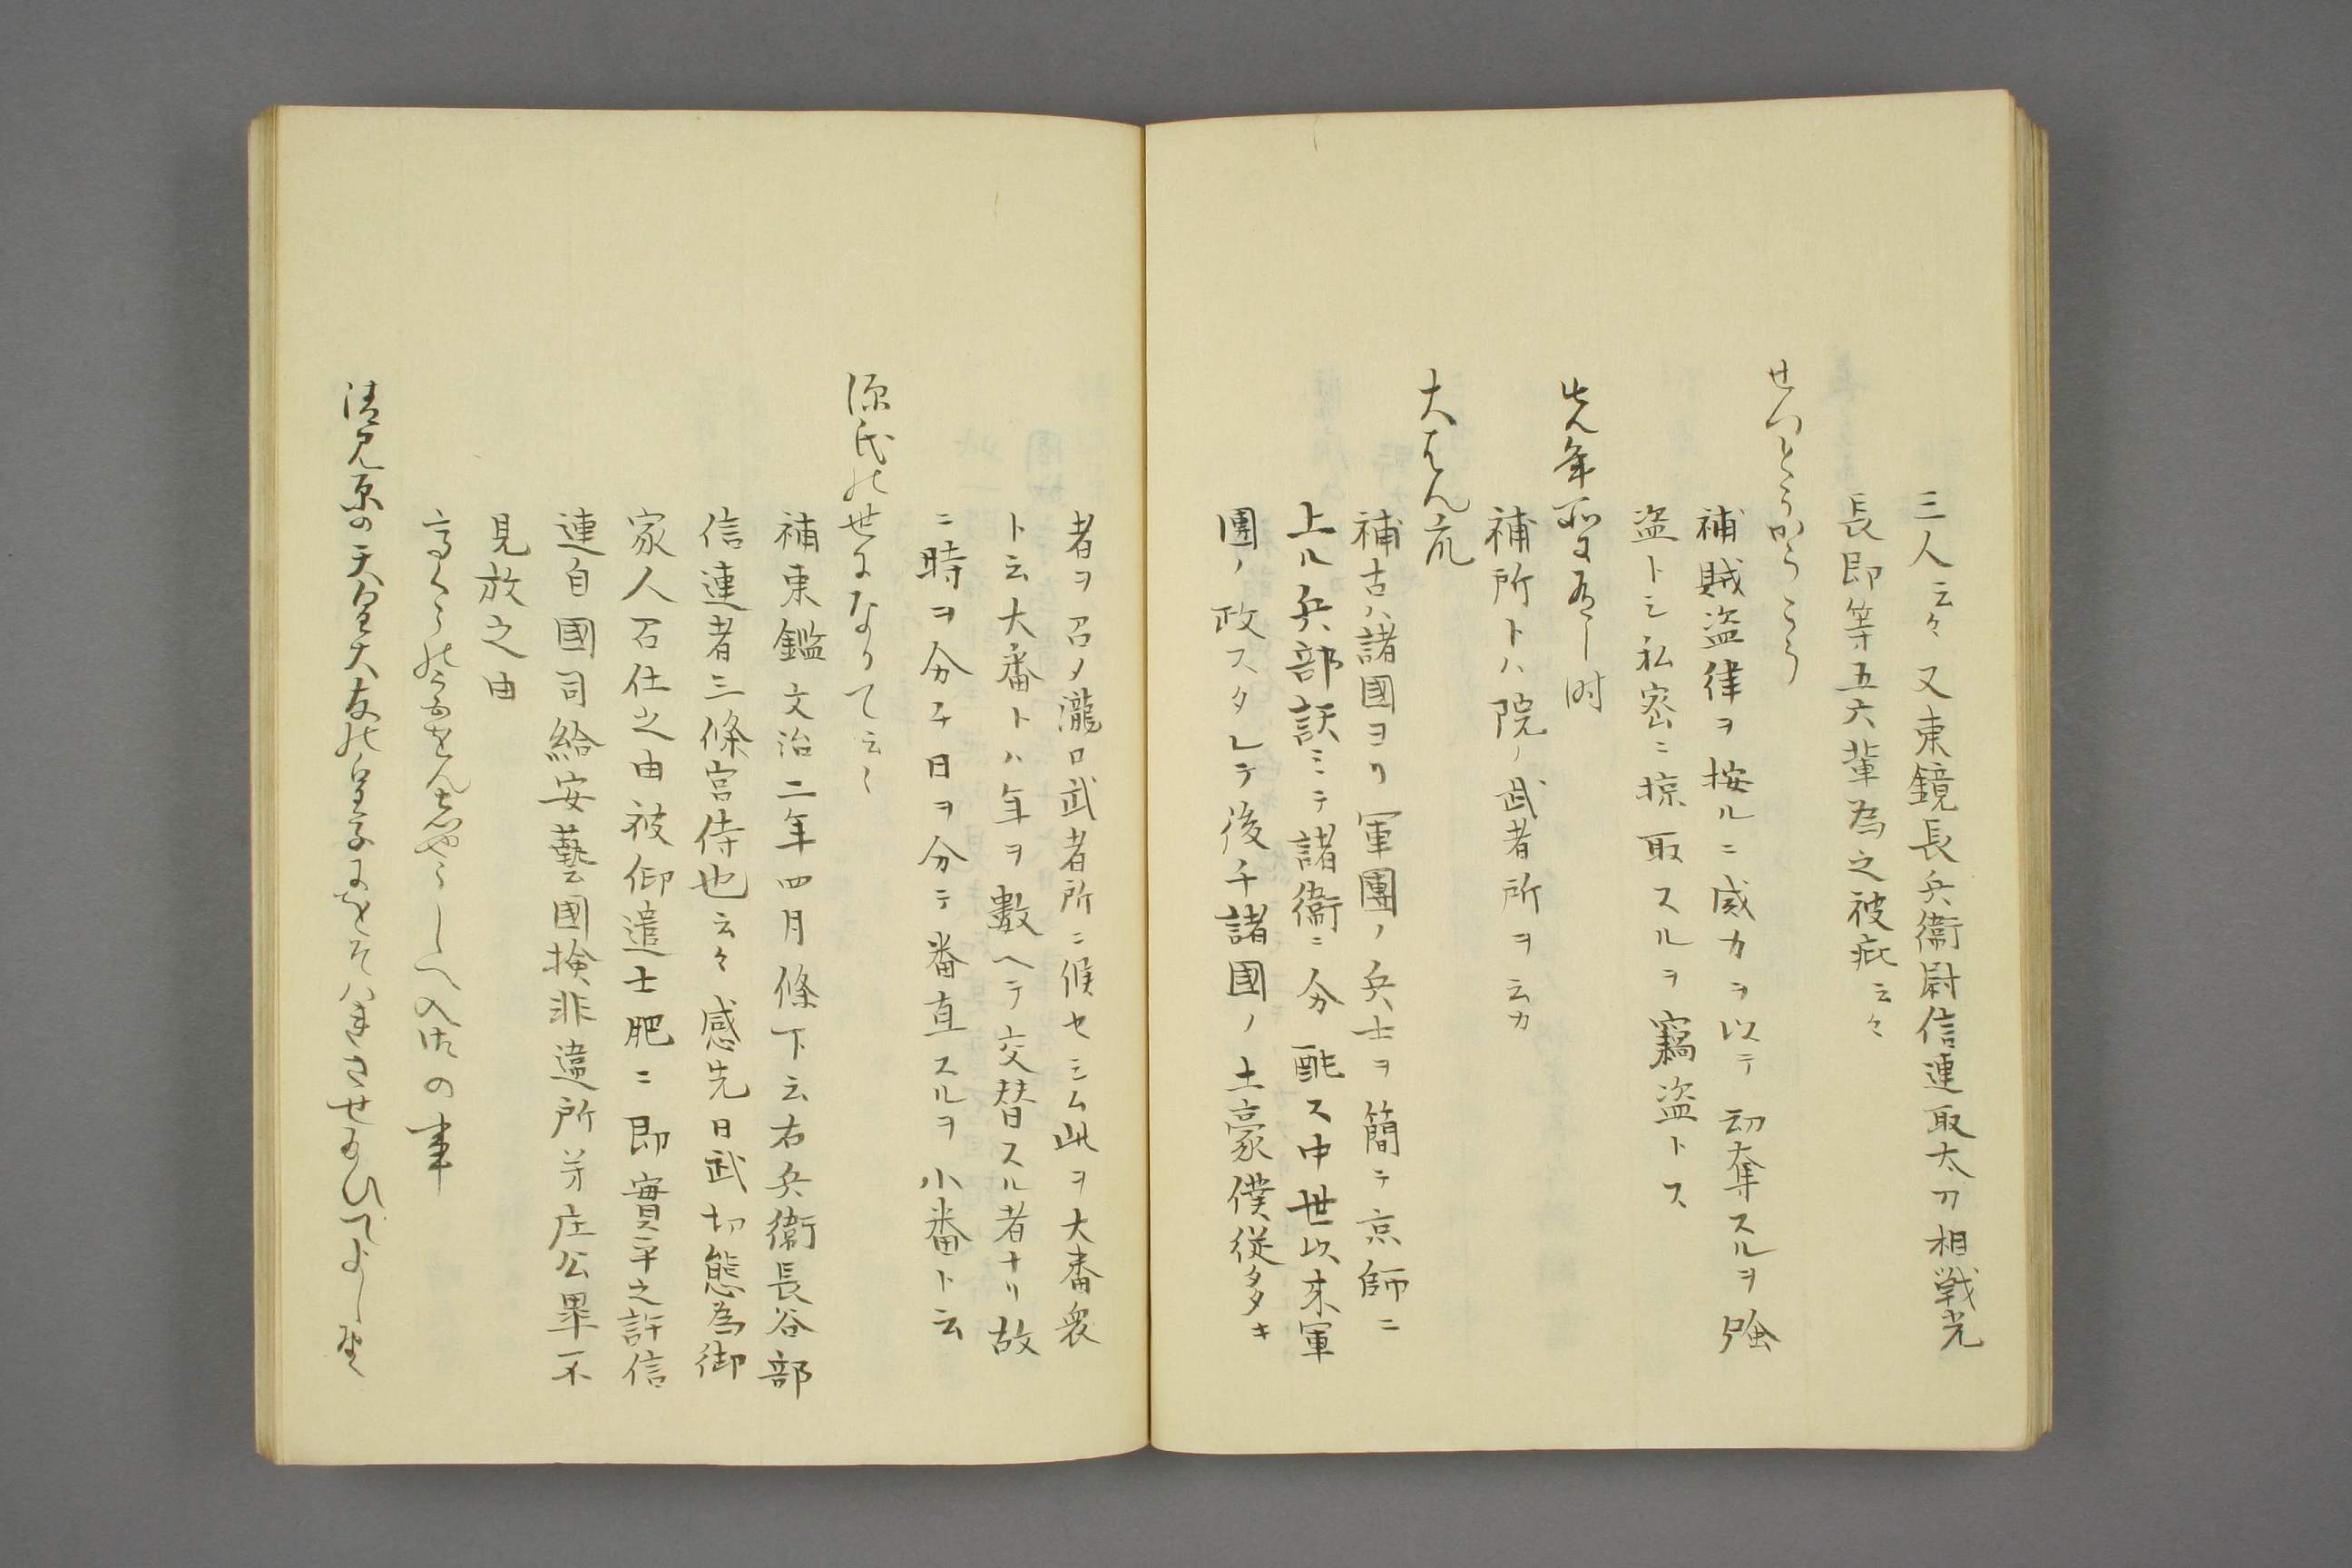 三人云々又東鏡長兵衞尉信連取太刀相戦光
長郎等五六輩為之被疵云々
せつとうかうとう
補賊盗律ヲ按ルニ威力ヲ以テ劫奪スルヲ強
盗トシ私密ニ掠取スルヲ竊盗トス
先年所に有し時
補所トハ院ノ武者所ヲ云カ
大はん衆
補古ハ諸國ヨリ軍團ノ兵士ヲ簡テ京師ニ
上ル兵部試ミテ諸衞ニ分配ス中世以来軍
團ノ政スタレテ後チ諸國ノ土豪僕従多キ
者ヲ召メ瀧口武者所ニ候セシム此ヲ大番衆
ト云大番トハ年ヲ數ヘテ交替スル者ナリ故
ニ時ヲ分チ日ヲ分テ番直スルヲ小番ト云
源氏の世になりて云〻
補東鑑文治二年四月條下云右兵衞長谷部
信連者三條宮侍也云々感先日武切態為御
家人召仕之由被仰遣土肥二郎實平之許信
連自國司給安藝國検非違所并庄公畢不
見放之由
高くらの宮をん志やうしへ入御の事
清見原の天皇大友の皇子におそはれさせ給ひてよし野